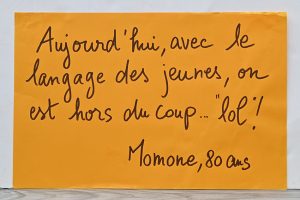 Aujourd'hui, avec le
langage des jeunes, on
est hors du coup... "lol"!
Momone, 80 ans